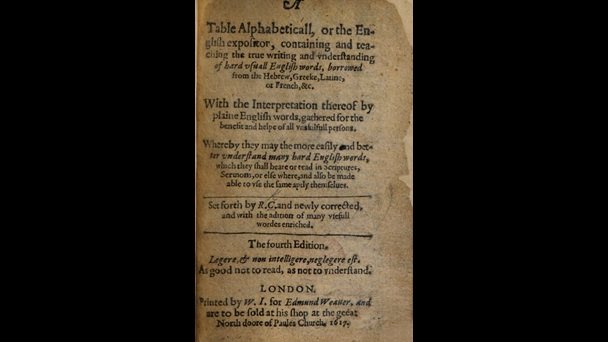 A
Table Alphabeticall, or the En-
glish expositor, containing and tea-
ching the true writing and vnderstanding
of hard vsuall English words, borrowed
from the Hebrew, Greeke, Latine,
or French, &c.
With the Interpretation thereof by
plaine English words, gathered for the
benefit and helpe of all vnskilfull persons.
Whereby they may the more easily and bet-
ter vnderstand many hard English words,
which they shall heare or read in Scriptures,
Sermons, or else where, and also be made
able to vse the same aptly themselues.
Set forth by R.C. and newly corrected,
and with the adition of many vsefull
wordes enriched.
The fourth Edition.
Legere, & non intelligere, neglegere est.
As good not to read, as not to vnderstand.
LONDON.
Printed by W. I. for Edmund Weauer, and
are to be sold at his shop at the great
North doore of Paules Church, 1617.